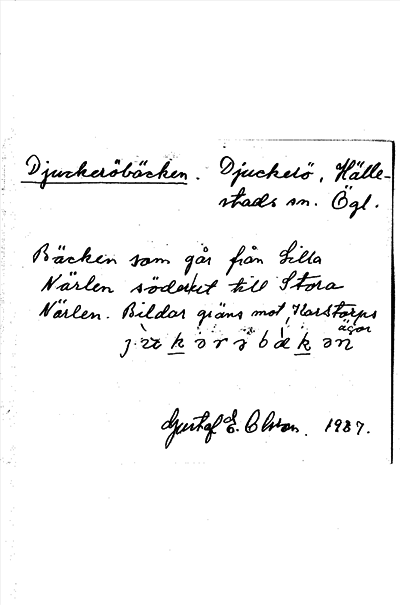 Djuckeröbäcken. Djuckerö, Hälle-
stads sn. Ögl.
Bäcken som går från Lilla
Närlen söderut till Stora
Närlen. Bildar gräns mot Karstorps
ägor
Gustaf E. Olsson. 1937.